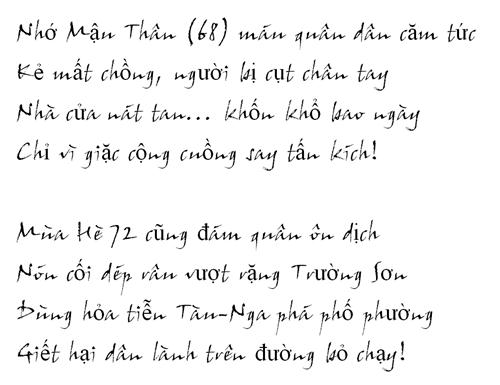 Nhớ Mậu Thân (68) máu quân dân căm tức
Kẻ mất chồng, người bị cụt chân tay
Nhà cửa nát tan... khốn khổ bao ngày
Chỉ vì giặc cộng cuồng say tấn kích!
Mùa Hè 72 cũng đám quân ôn dịch
Nón cối dép râu vượt rặng Trường Sơn
Dùng hỏa tiễn Tàu-Nga phá phố phường
Giết hại dân lành trên đường bỏ chạy!